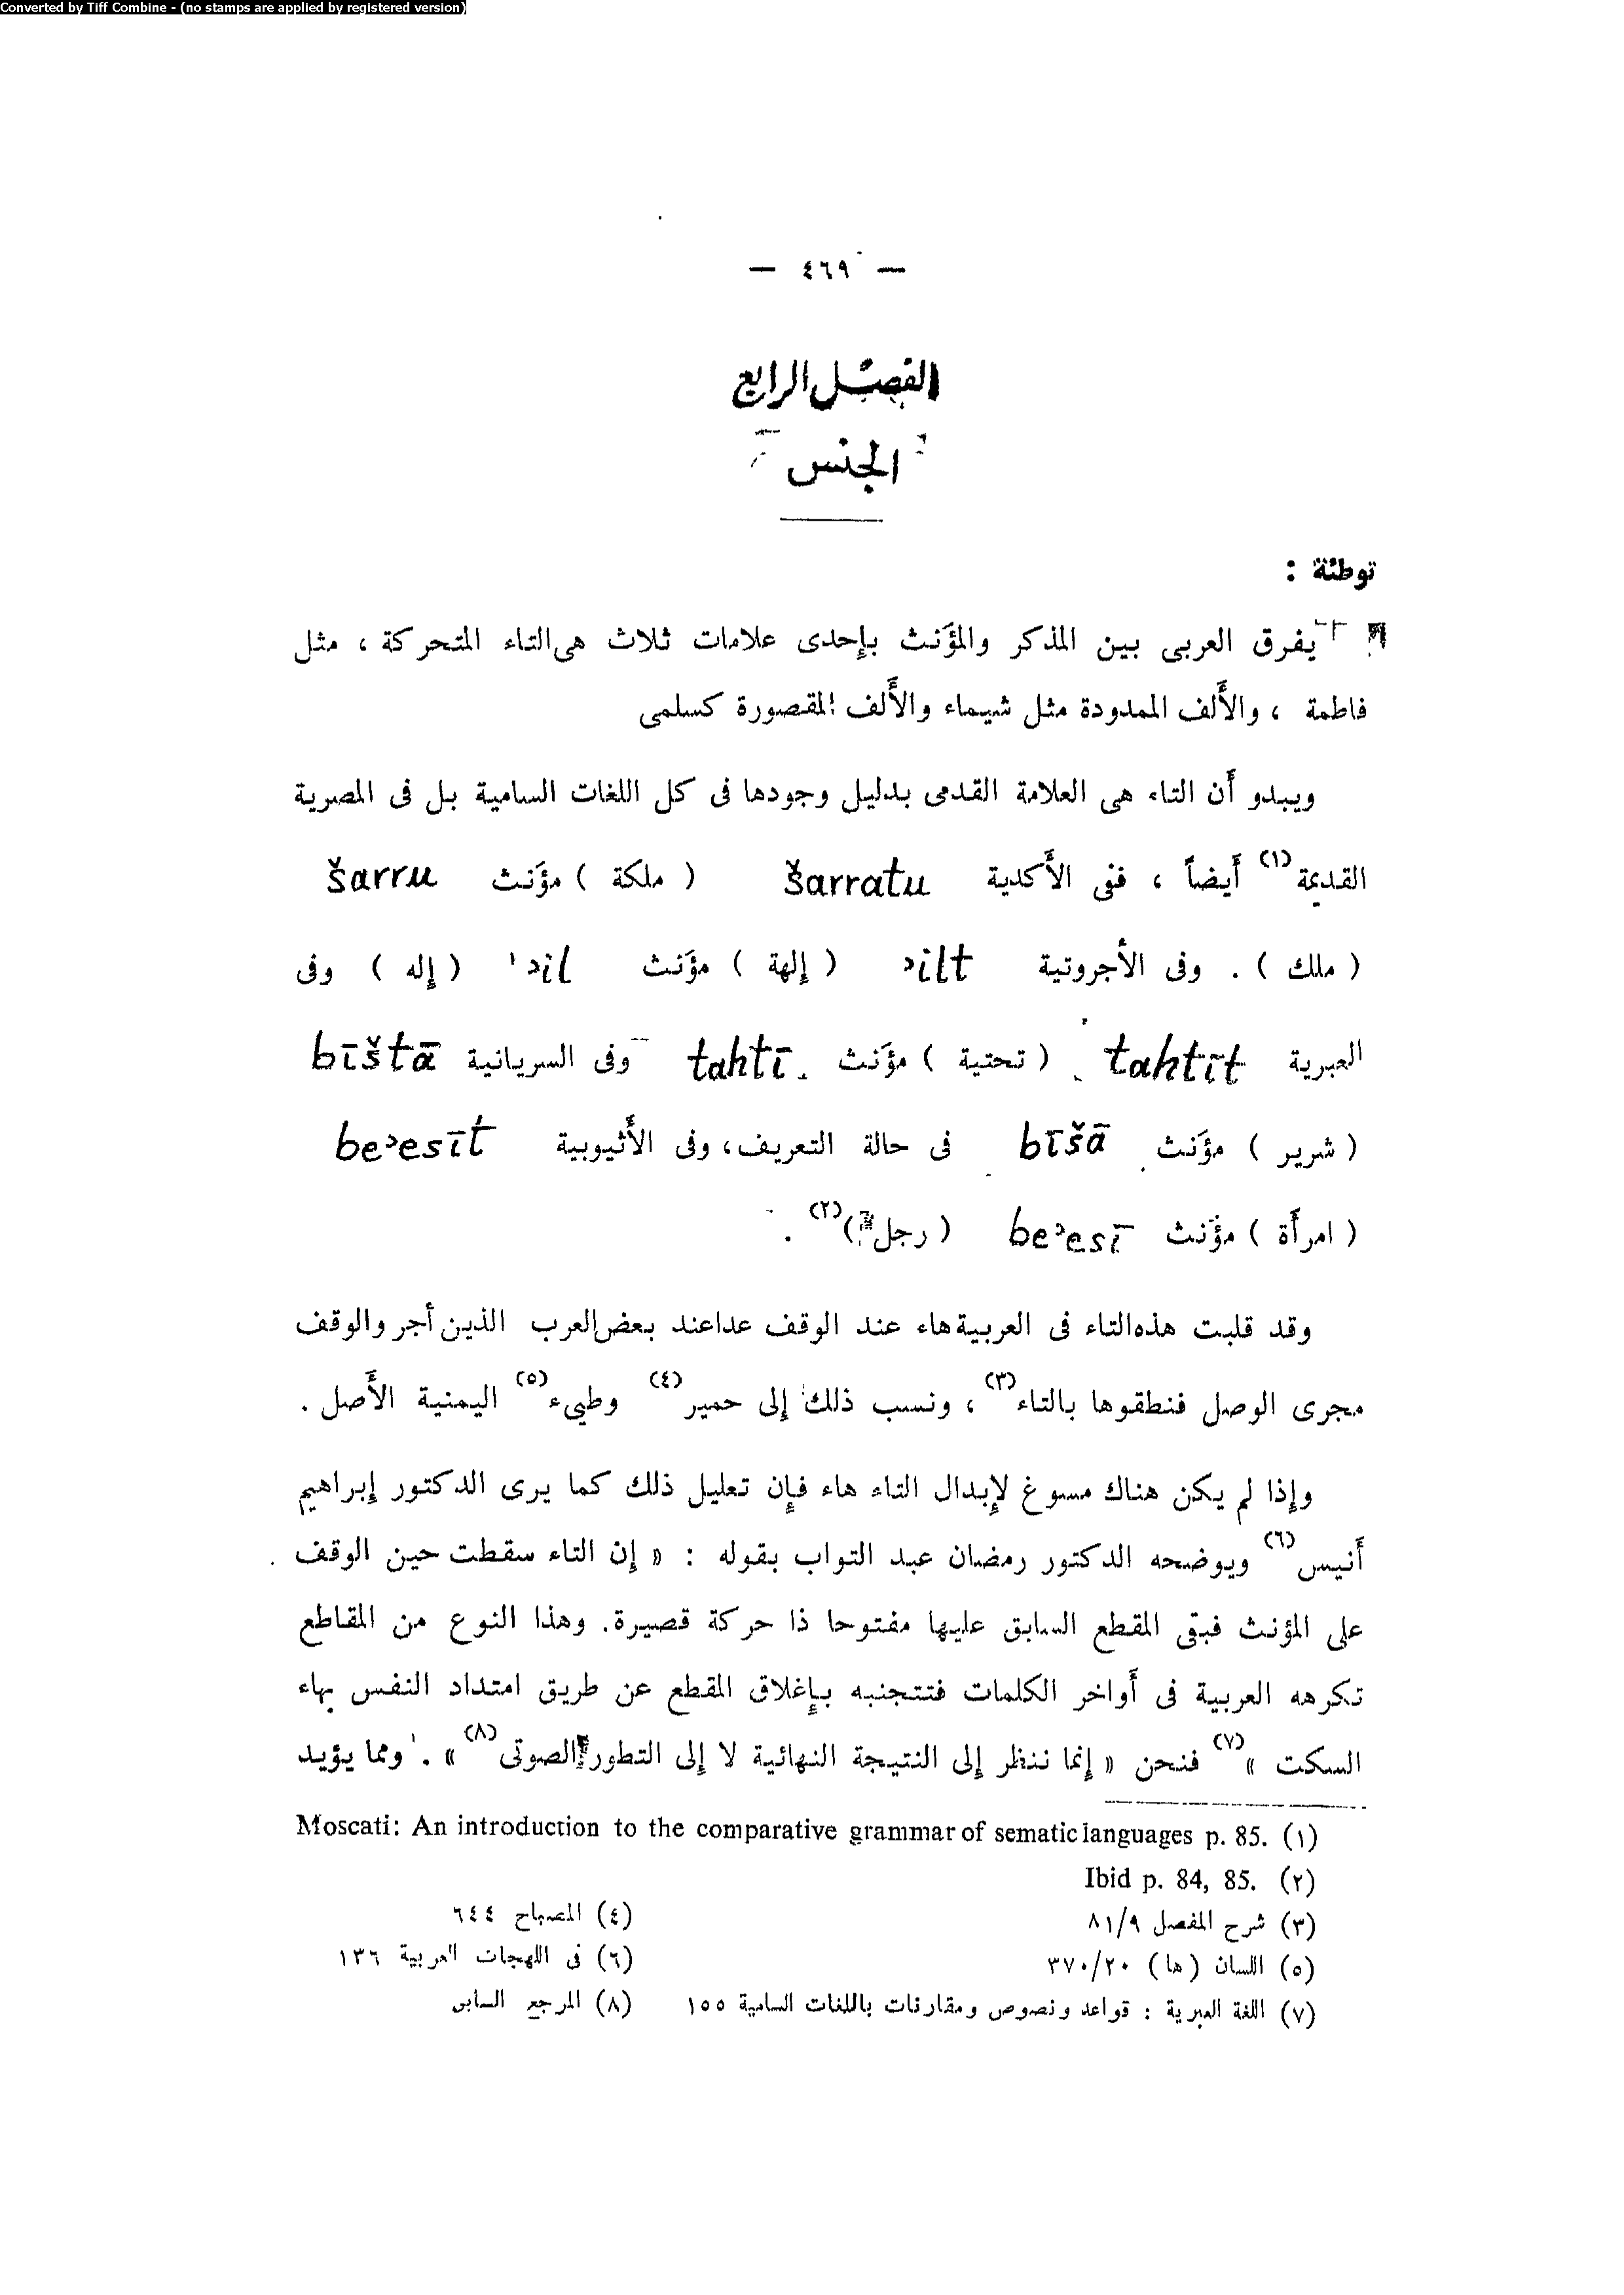 Converted by Tiff Combine - (no stamps are applied by registered version)
— ٤٦٩ —
الفصل الرابع
الجنس
توطئة :
يفرق العربى بين المذكر والمؤَنث بإِحدى علامات ثلاث هى التاء المتحركة ، مثل
فاطمة ، والأَلف الممدودة مثل شيماء والأَلف المقصورة كسلمى
ويبدو أَن التاء هى العلامة القدمى بدليل وجودها فى كل اللغات السامية بل فى المصرية
القديمة(١) أَيضاً ، ففى الأَكدية šarratu ( ملكة ) مؤَنث šarru
( ملك ) . وفى الأجروتية ʾilt ( إِلهة ) مؤَنث ʾil ( إِله ) وفى
العبرية tahtīt ( تحتية ) مؤَنث tahtī وفى السريانية bīštā
( شرير ) مؤَنث bīšā فى حالة التعريف، وفى الأَثيوبية beʾesīt
( امرأَة ) مؤَنث beʾesī ( رجل )(٢) .
وقد قلبت هذه التاء فى العربية هاء عند الوقف عدا عند بعض العرب الذين أجر والوقف
مجرى الوصل فنطقوها بالتاء(٣) ، ونسب ذلك إِلى حمير(٤) وطيىء(٥) اليمنية الأَصل .
وإِذا لم يكن هناك مسوغ لإِبدال التاء هاء فإِن تعليل ذلك كما يرى الدكتور إِبراهيم
أَنيس(٦) ويوضحه الدكتور رمضان عبد التواب بقوله : « إِن التاء سقطت حين الوقف
على المؤنث فبقى المقطع السابق عليها مفتوحا ذا حركة قصيرة. وهذا النوع من المقاطع
تكرهه العربية فى أَواخر الكلمات فتتجنبه بإِغلاق المقطع عن طريق امتداد النفس بهاء
السكت »(٧) فنحن « إِنما ننظر إِلى النتيجة النهائية لا إِلى التطور الصوتى(٨) » . ومما يؤيد
Moscati: An introduction to the comparative grammar of sematic languages p. 85. (١)
Ibid p. 84, 85. (٢)
(٣) شرح المفصل ٨١/٩ (٤) المصباح ٦٤٤
(٥) اللسان (ها) ٣٧٠/٢٠ (٦) فى اللهجات العربية ١٣٦
(٧) اللغة العبرية : قواعد ونصوص ومقارنات باللغات السامية ١٥٥ (٨) المرجع السابق